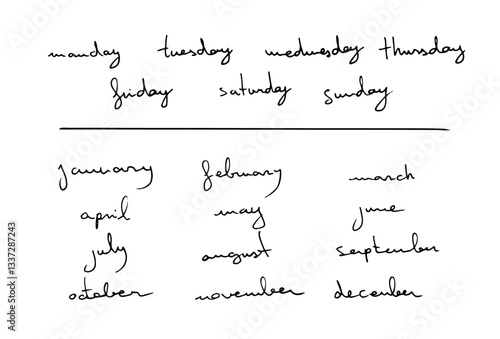 monday tuesday wednesday thursday
friday saturday sunday
january february march
april may june
july august september
october november december
Adobe Stock | #1337287243